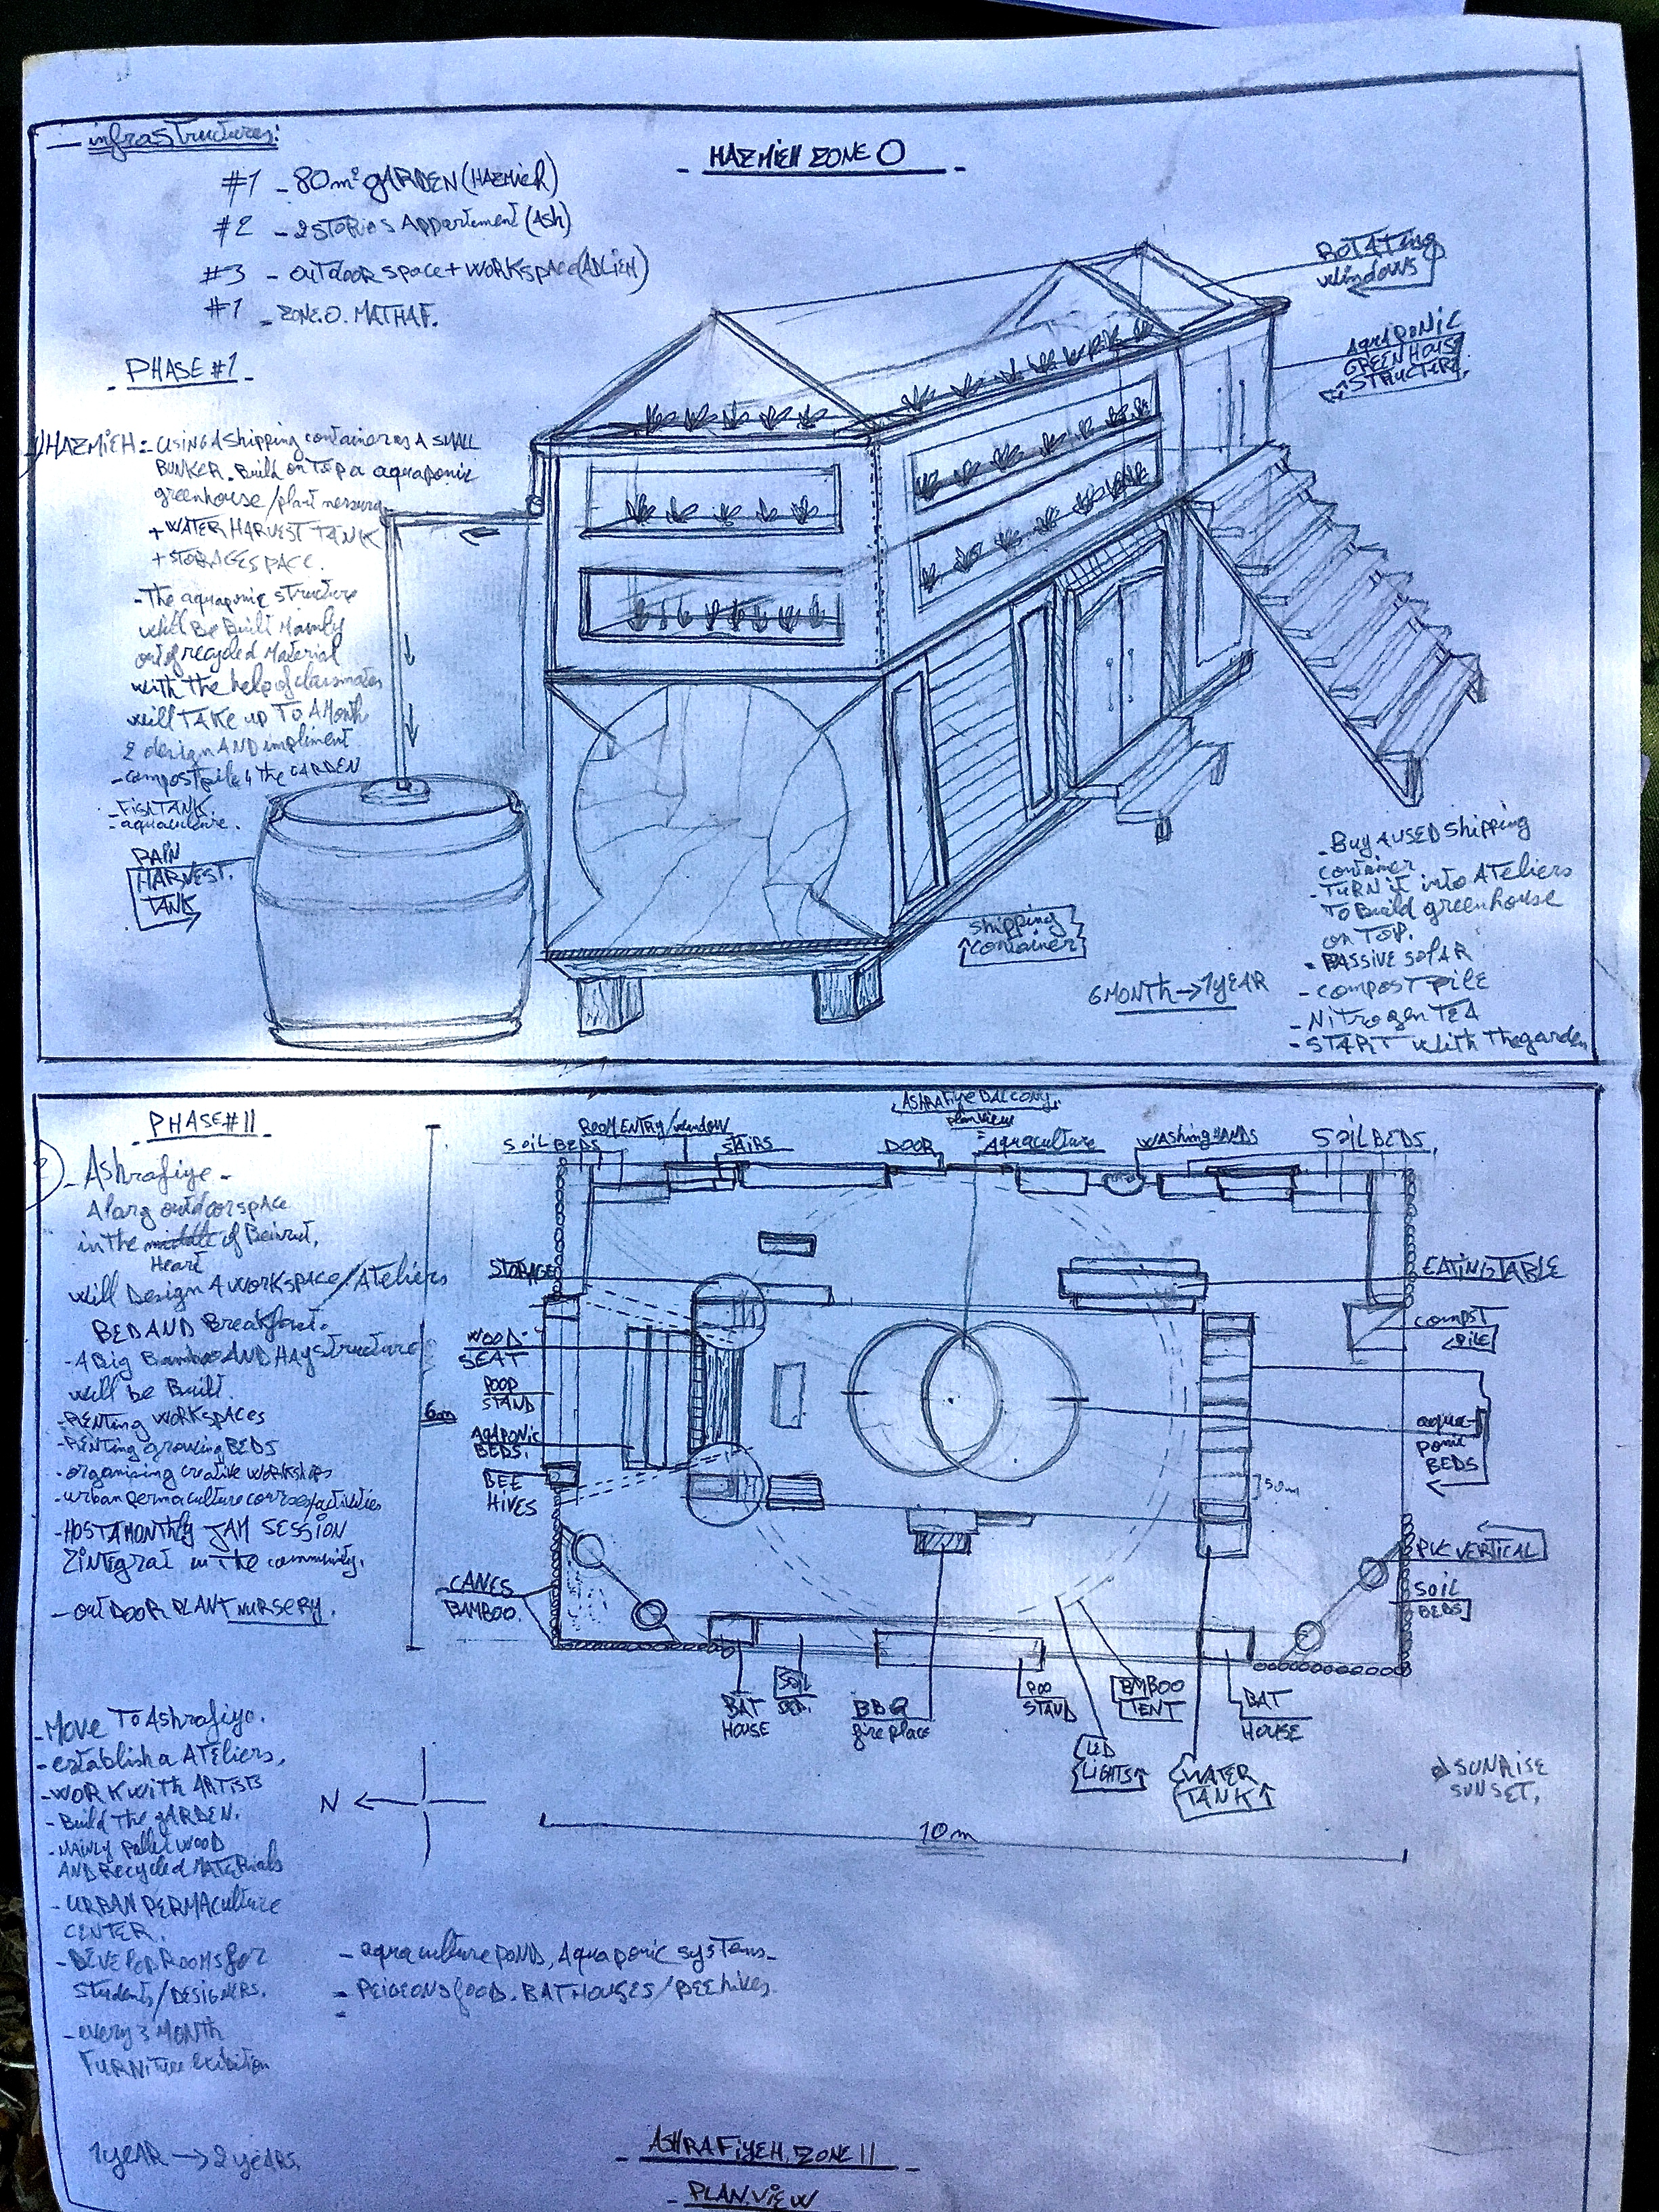 infrastructures:
HAZMIEH ZONE O
#1 - 80m² GARDEN (HAZMIEH)
#2 - 2 STORIES Appartement (Ash)
#3 - outdoor space + workspace (ADLIEH)
#1 - ZONE.O. MATHAF.
ROTATING
windows
AQUAPONIC
GREENHOUSE
STRUCTURE
PHASE #1
HAZMIEH: - using A shipping container as A SMALL
BUNKER. Build on TOP a aquaponic
greenhouse/plant
+ WATER HARVEST TANK
+ STORAGE SPACE.
- The aquaponic structure
will Be Built Mainly
out of recycled Material
with the help of classmates
will TAKE up TO A Month
2 design AND impliment
- compost pile 4 the GARDEN
- FISH TANK.
- aquaculture.
RAIN
HARVEST.
TANK
shipping
container
6 MONTH → 1 YEAR
- Buy A USED shipping
container
- TURN it into ATELIERS
TO Build greenhouse
on TOP.
- PASSIVE SOLAR
- COMPOST PILE
- NITROGEN TEA
- START with The garden
PHASE # II
2) - Ashrafiye -
A larg outdoor space
in the middle of Beirut,
Heart
will Design A workspace/Ateliers
BED AND Breakfast.
- A Big Bamboo AND HAY structure
will be Built.
- RENTING WORKSPACES
- RENTING growing BEDS
- organising creative workshops
- urban permaculture courses/activities
- HOST A MONTHLY JAM SESSION
2 integrat in the community.
- OUTDOOR PLANT NURSERY.
ASHRAFIYE BALCONY
plan view
SOIL BEDS
ROOM ENTRY/window
STAIRS
DOOR
Aquaculture
WASHING HANDS
SOIL BEDS
STORAGE
WOOD
SEAT
POOP
STAND
AQAPONIC
BEDS.
BEE
HIVES
CANES
BAMBOO.
6m
EATING TABLE
COMPST
PILE
aqua-
ponic
BEDS
50m
PVC VERTICAL
SOIL
BEDS
BAT
HOUSE
SOIL
BED.
BBQ
fire place
POO
STAND
LED
LIGHTS
BMBOO
TENT
WATER
TANK
BAT
HOUSE
SUNRISE
SUNSET.
N
10 m
- Move To Ashrafiye.
- establish a ATELIERS,
- WORK with ARTISTS
- Build The GARDEN.
- MAINLY pallet WOOD
AND Recycled MATERIALS
- URBAN PERMACULTURE
CENTER.
- DEVELOP ROOMS for
students/DESIGNERS.
- every 3 MONTH
FURNITURE Exibition
- aquaculture POND, Aquaponic systems -
- PEIGEONS food. BAT HOUSES/BEE hives.
1 YEAR → 2 YEARS.
ASHRAFIYEH, ZONE II
- PLAN.VIEW